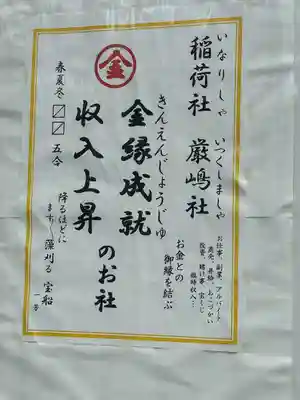 いなりしゃ いつくしましゃ
稲荷社 厳嶋社
お仕事、副業、アルバイト
商売、昇給、おこづかい
投資、賭け事、宝くじ
臨時収入…
お金との
御縁を結ぶ
きんえんじょうじゅ
金縁成就
収入上昇
のお社
金
春夏冬 〼〼 五合
降るほどに
ます〜藻刈る 宝船